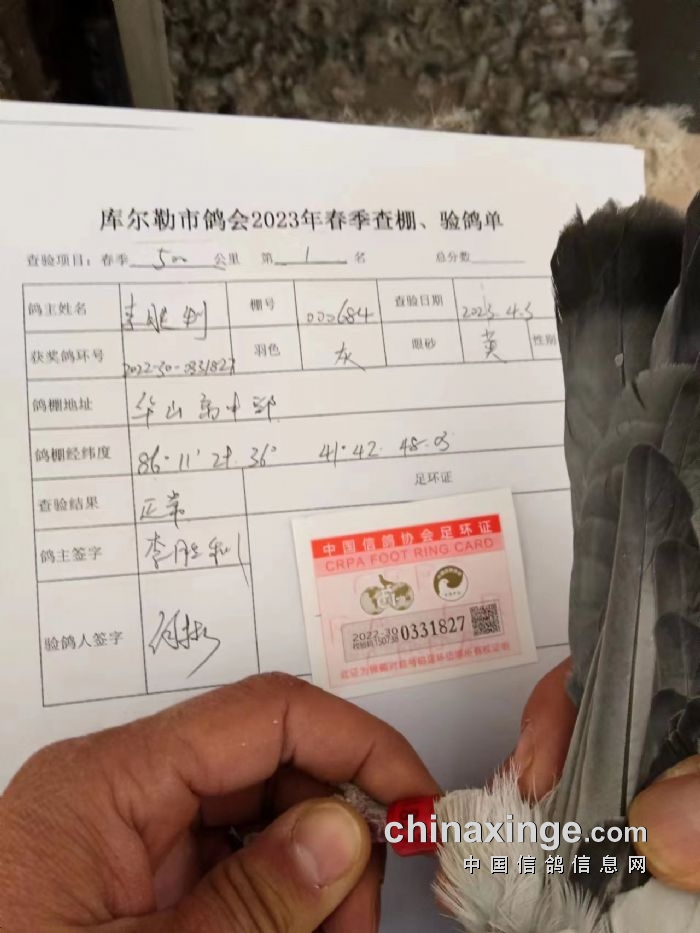 库尔勒市鸽会2023年春季查棚、验鸽单
查验项目：春季 500 公里 第 1 名 总分数
鸽主姓名 李胜利 棚号 000684 查验日期 2023.4.3
获奖鸽环号 2022-30-0331827 羽色 灰 眼砂 黄 性别
鸽棚地址 华山高中部
鸽棚经纬度 86°11′ 36° 41°42. 48.03
足环证
查验结果 正常
鸽主签字 李胜利
验鸽人签字
中国信鸽协会足环证
CRPA FOOT RING CARD
2022-30
校验码150738
0331827
chinaxinge.com
中国信鸽信息网